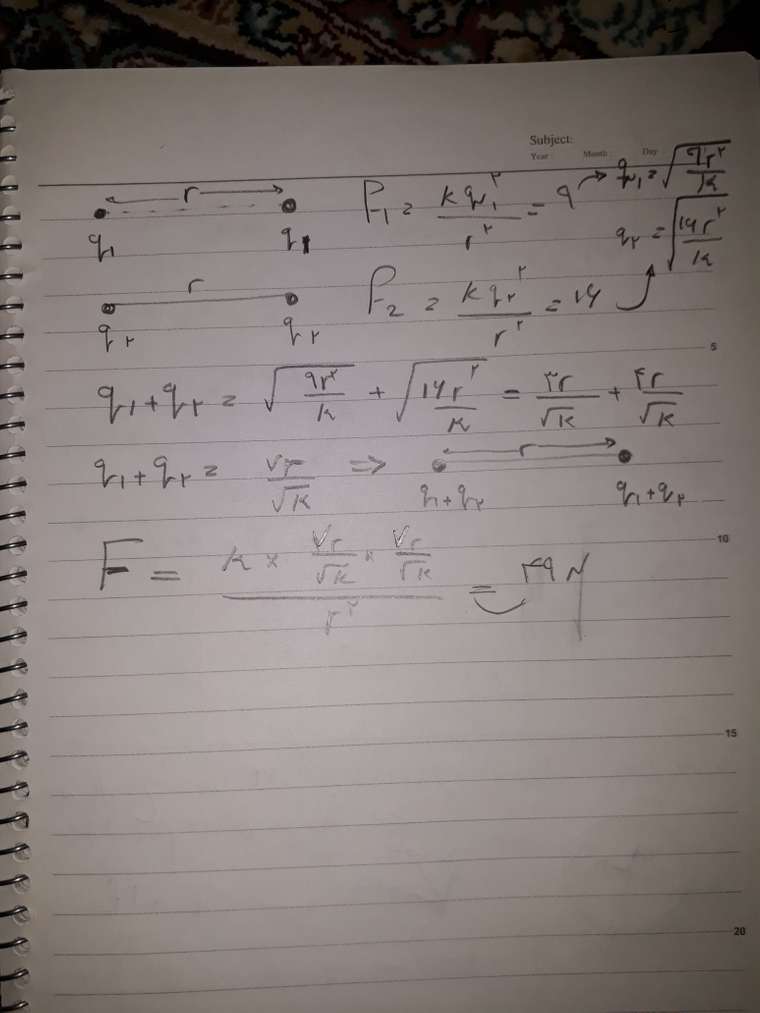 Subject:
Year : Month : Day
r F₁ = kq₁^۲ / r^۲ = ۹ → q₁ = √(۹r^۲ / k)
q₁ q₁ q۲ = √(۱۶r^۲ / k)
r F₂ = kq۲^۲ / r^۲ = ۱۶
q۲ q۲
5
q₁ + q۲ = √(۹r^۲ / k) + √(۱۶r^۲ / k) = ۳r / √k + ۴r / √k
q₁ + q۲ = ۷r / √k ⇒ r
q₁ + q۲ q₁ + q۲
10
F = k × ۷r / √k × ۷r / √k / r^۲ = ۴۹ N
15
20